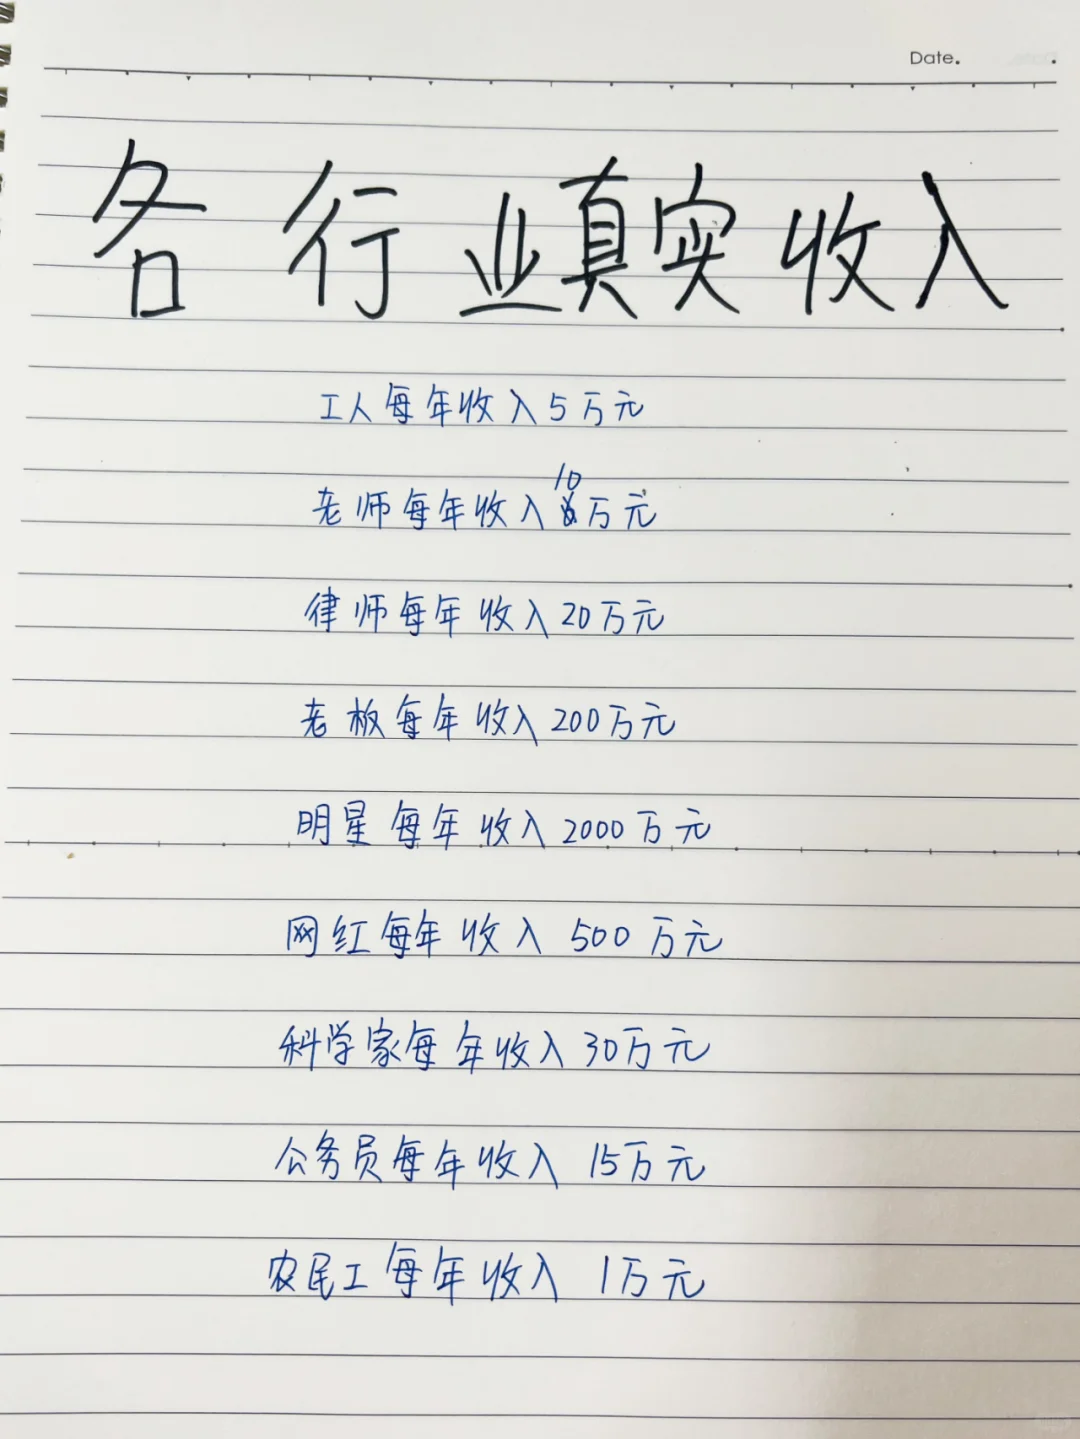 Date.
各行业真实收入
工人每年收入5万元
老师每年收入10万元
律师每年收入20万元
老板每年收入200万元
明星每年收入2000万元
网红每年收入500万元
科学家每年收入30万元
公务员每年收入15万元
农民工每年收入1万元